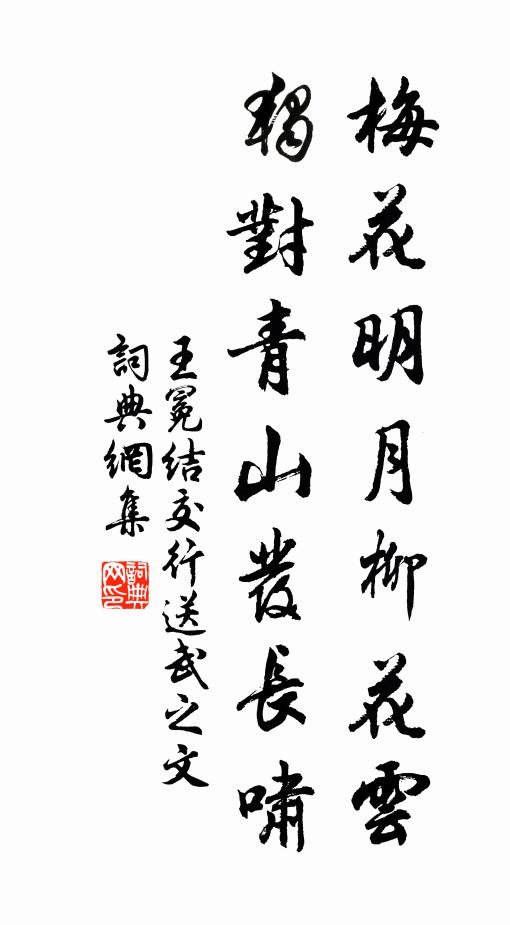 梅花明月柳花雲
獨對青山發長嘯
王冕結交行送武之文
詞典網集
詞典网印